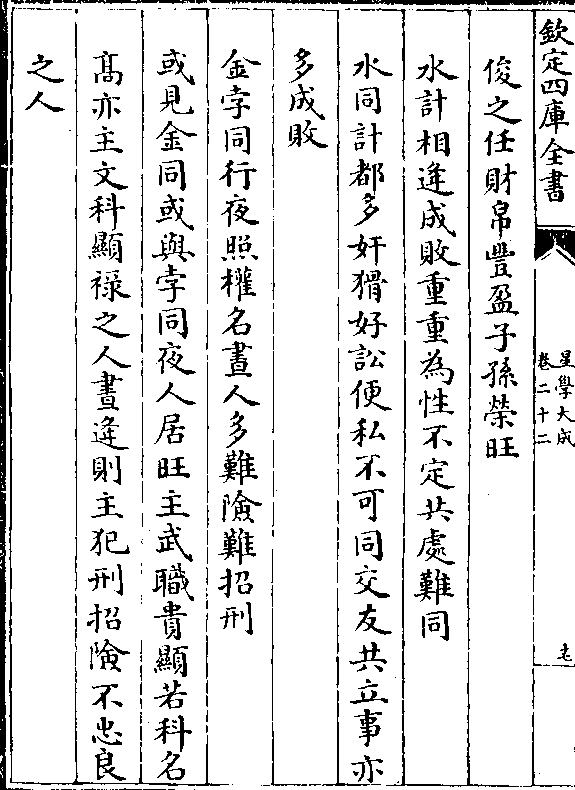 欽定四庫全書
星學大成
卷二十二
俊之任財帛豐盈子孫榮旺
水計相逢成敗重重為性不定共處難同
水同計都多奸猾好訟便私不可同交友共立事亦
多成敗
金孛同行夜照權名晝人多難險難招刑
或見金同或與孛同夜人居旺主武職貴顯若科名
髙亦主文科顯禄之人晝逢則主犯刑招險不忠良
之人